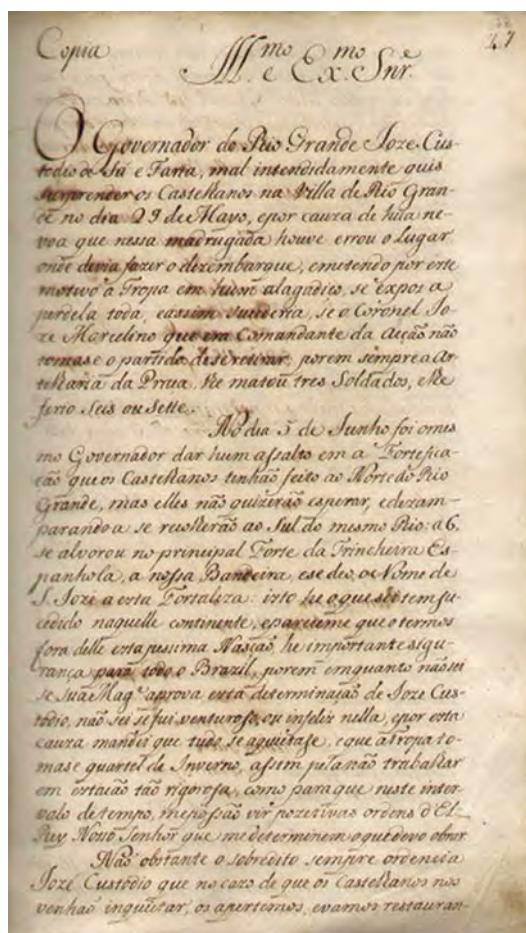 Copia
47
Ill.mo e Ex.mo Snr.
O Governador do Rio Grande Joze Cus-
todio de Sá e Faria, mal intendidamente quis
surprender os Castelhanos na Villa de Rio Gran-
de no dia 29 de Mayo, epor cauza de húa ne-
voa que nessa madrugada houve errou o lugar
onde devia fazer o dezembarque, emetendo por este
motivo a Tropa em hum alagadiço, se expos a
perdela toda, eassim sucederia, se o Coronel Jo-
ze Marcelino que era Comandante da Acção não
tomase o partido de se retirar, porem sempre a Ar-
telharia da Praia, lhe matou tres Soldados, e lhe
ferio Seis ou Sette.
No dia 5 de Junho foi o mes
mo Governador dar hum assalto em a Fortefica-
ção que os Castelhanos tinhão feito ao Norte do Rio
Grande, mas elles não quizerão esperar, edezam-
parandoa se recolherão ao Sul do mesmo Rio: a 6.
se alvorou no principal Forte da Trincheira Es-
panhola, a nossa Bandeira, ese deo, o Nome de
S. Jozé a esta Fortaliza: isto he o que se tem su-
cedido naquelle continente, epareceme que o termos
fora delle esta pessima Nasção, he importante sigu-
rança para todo o Brazil, porem emquanto não sei
se Sua Mag.e aprova esta determinação de Joze Cus-
todio, não sei se fui venturoso, ou infeliz nella, epor esta
cauza mandei que tudo se aquietase, e que a tropa to-
mase quartel de Inverno, assim pela não trabalhar
em estação tão rigorosa, como para que neste inter-
valo de tempo, me possão vir pozitivas ordens d'El-
Rey Nosso Senhor que me determinem o que devo obrar.
Não obstante o sobredito sempre ordenei a
Jozé Custodio que no cazo de que os Castelhanos nos
venhão inquietar, os apertemos, evamos restauran-